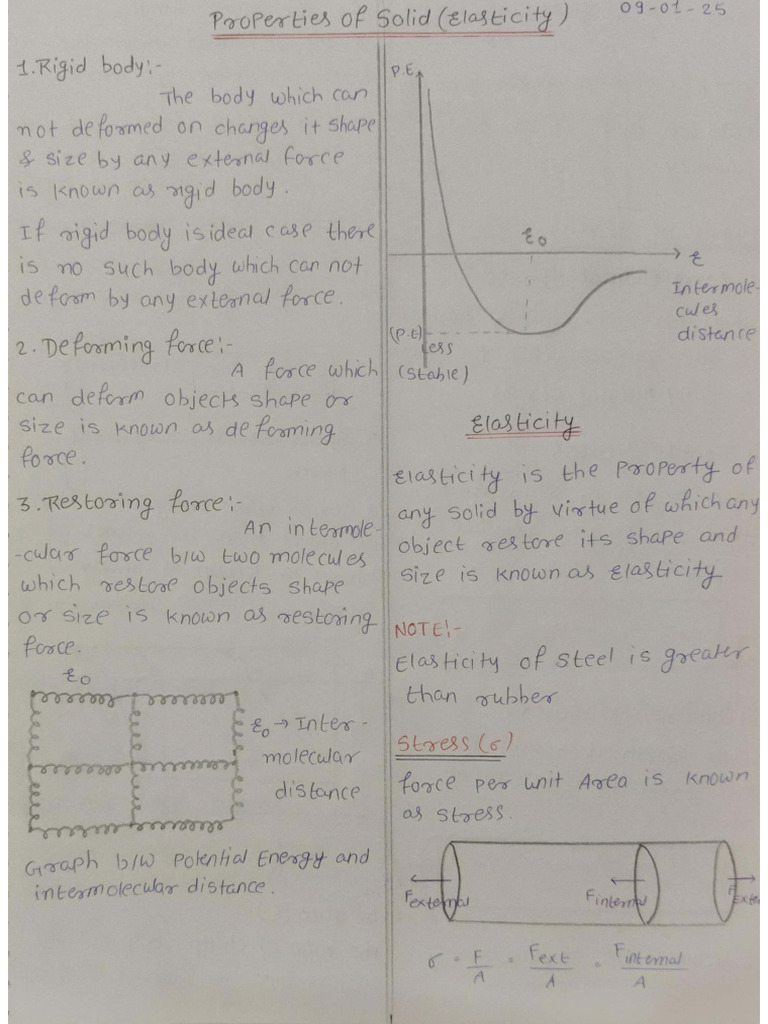 Properties of Solid (Elasticity)
09-01-25
1. Rigid body:-
The body which can
not deformed on changes it shape
& size by any external force
is known as rigid body.
If rigid body is ideal case there
is no such body which can not
deform by any external force.
2. Deforming force:-
A force which
can deform objects shape or
size is known as deforming
force.
3. Restoring force:-
An intermole-
-cular force b/w two molecules
which restore objects shape
or size is known as restoring
force.
ε0
ε0 → Inter-
molecular
distance
Graph b/w Potential Energy and
intermolecular distance.
P.E
ε0
ε
Intermole-
cules
distance
(P.E)
Less
(Stable)
Elasticity
Elasticity is the Property of
any solid by virtue of which any
object restore its shape and
size is known as Elasticity
NOTE:-
Elasticity of steel is greater
than rubber
Stress (σ)
force per unit Area is known
as stress.
Fexternal
Finternal
FExte
σ = F/A = Fext/A = Finternal/A